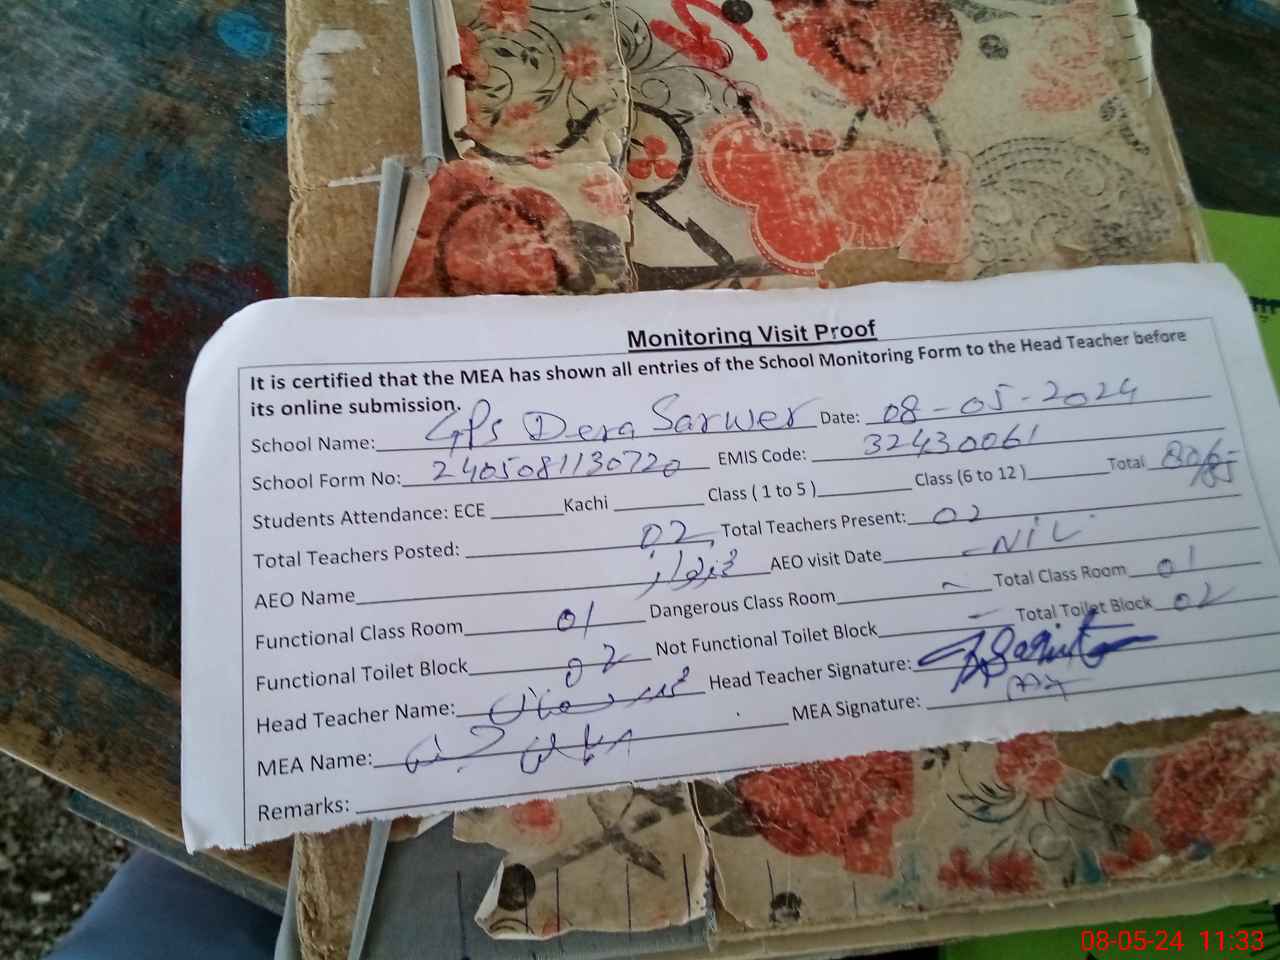 Monitoring Visit Proof
It is certified that the MEA has shown all entries of the School Monitoring Form to the Head Teacher before
its online submission.
School Name: GPS Dera Sarwer Date: 08-05-2024
School Form No: 2405081130720 EMIS Code: 32430061
Students Attendance: ECE Kachi Class ( 1 to 5 ) Class (6 to 12 ) Total
Total Teachers Posted: 02 Total Teachers Present: 02
AEO Name AEO visit Date NIL
Functional Class Room 01 Dangerous Class Room - Total Class Room 01
Functional Toilet Block 02 Not Functional Toilet Block - Total Toilet Block 02
Head Teacher Name: Head Teacher Signature:
MEA Name: MEA Signature:
Remarks:
08-05-24 11:33